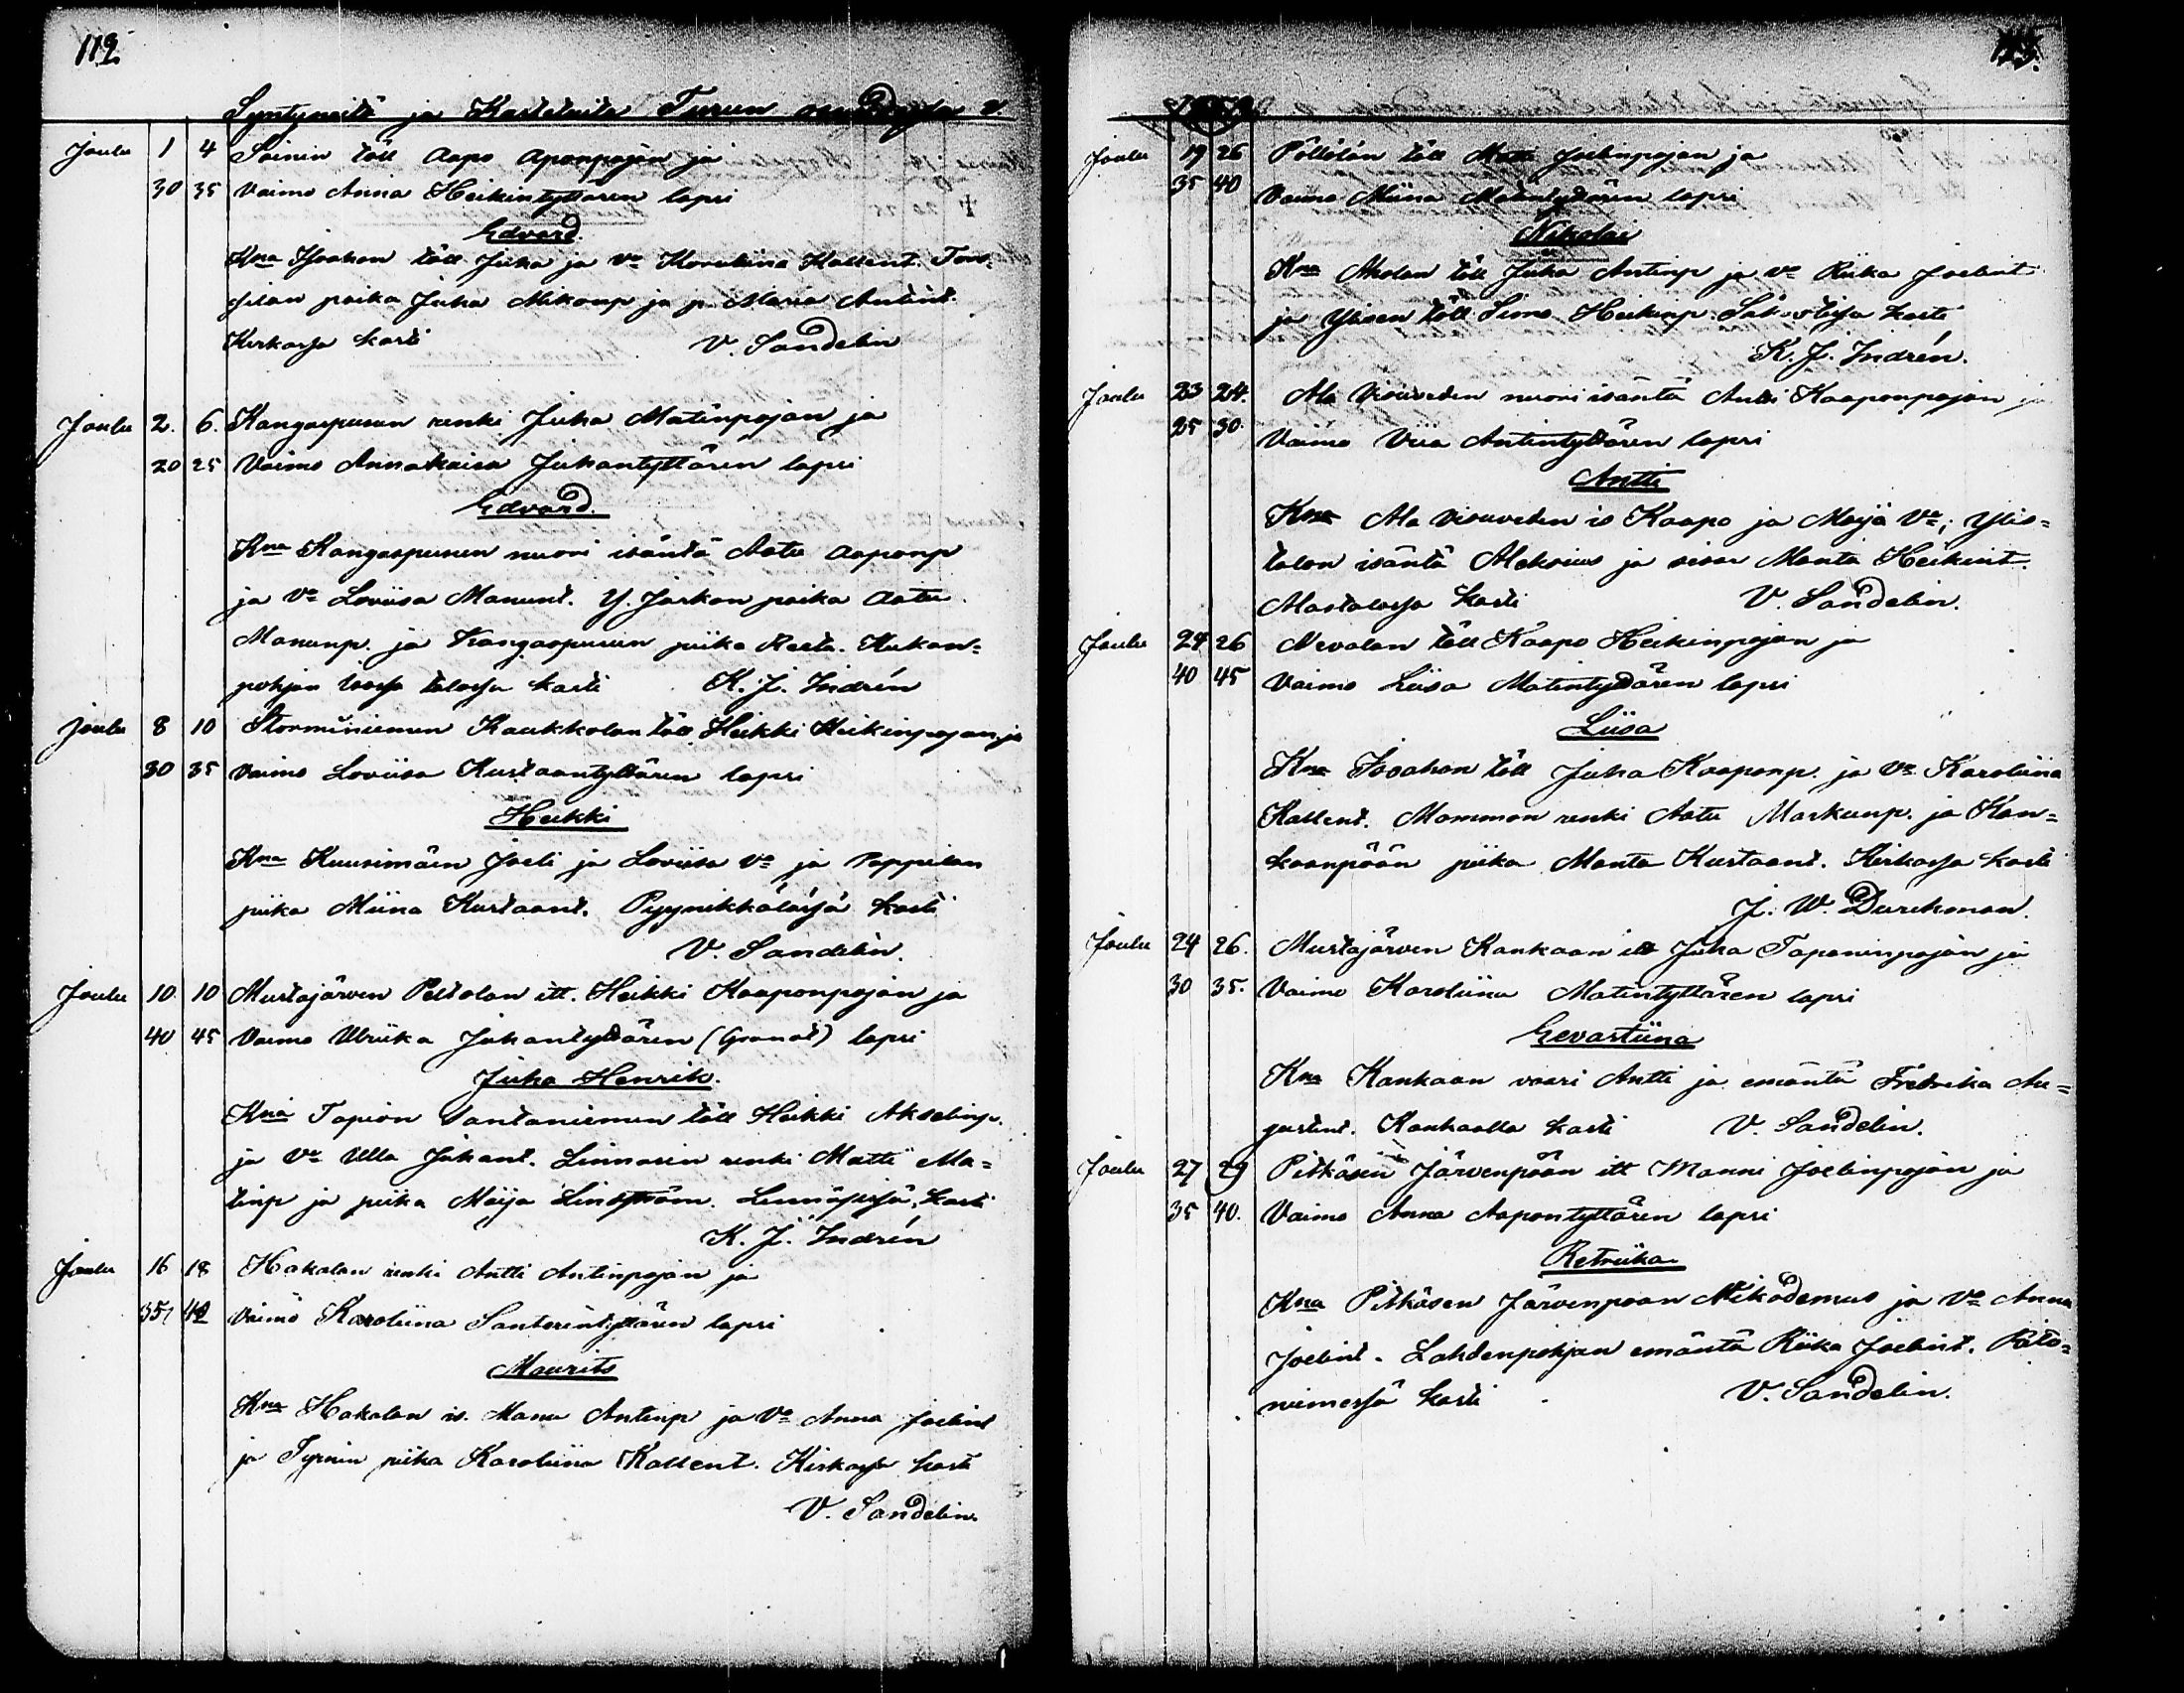 112
Syntyneitä ja Kastetuita Turun
Joulu 1 4 Soinin töll Aapo Aponpojan ja
30 35 Vaimo Anna Heikintyttären lapsi
Edvard.
Kna Isoahon töll Juha ja Vo Karoliina Kallent.
jilan poika Juha Mikonp ja p. Maria Antint.
Kirkossa kasti V. Sandelin
Joulu 2. 6. Kangaspunen renki Juha Matinpojan ja
20 25 Vaimo Annakaisa Juhantyttären lapsi
Edvard.
Kna Kangaspunen nuori isäntä Aatu Aaponp
ja Vo Loviisa Manunt. Y. Jaskan poika Aatu
Manunp. ja Kangaspunen piika Reeta. Kukon=
pohjan isossa talossa kasti K. J. Indrén
Joulu 8 10 Storminiemen Kaukkolan töll Heikki Heikinpojan ja
30 35 Vaimo Loviisa Kustaantyttären lapsi
Heikki
Kna Kuusimäen Joeli ja Loviisa Vo ja Pappilan
piika Miina Kustaant. Pyynikkälässä kasti
V. Sandelin.
Joulu 10 10 Mustajärven Peltolan itt. Heikki Kaaponpojan ja
40 45 Vaimo Ulriika Juhantyttären (Granat) lapsi
Juha Henrik.
Kna Tapion Santaniemen töll Heikki Akselinp.
ja Vo Ulla Juhant. Linnasin renki Matti Ma=
tinp ja piika Maija Lindström. kasti
K. J. Indrén
Joulu 16 18 Hakalan renki Antti Antinpojan ja
35 40 Vaimo Karoliina Santerintyttären lapsi
Maurits
Kna Hakalan is. Manu Antinp ja Vo Anna Joelint
ja Tyrnin piika Karoliina Kallent. Kirkossa kasti
V. Sandelin.
Joulu 19 26 Pöllölän töll Matti Joelinpojan ja
35 40 Vaimo Miina Matintyttären lapsi
Nikolai
Kna Aholan töll Juha Antinp ja Vo Riika Joelint
ja Ylisen töll Simo Heikinp. kasti
K. J. Indrén.
Joulu 23 24. Ala Visuveden nuori isäntä Antti Kaaponpojan ja
25 30. Vaimo Viia Antintyttären lapsi
Antti
Kna Ala Visuveden is Kaapo ja Maija Vo; Ylis=
talon isäntä Aleksius ja sisar Manta Heikint.
kasti V. Sandelin.
Joulu 24 26 Nevalan töll Kaapo Heikinpojan ja
40 45 Vaimo Liisa Matintyttären lapsi
Liisa
Kna Isoahon töll Juha Kaaponp. ja Vo Karoliina
Kallent. Mommon renki Aatu Markunp. ja Kan=
kaanpään piika Manta Kustaant. Kirkossa kasti
J. W. Durchman.
Joulu 24 26. Mustajärven Kankaan itt Juha Tapaninpojan ja
30 35. Vaimo Karoliina Matintyttären lapsi
Eevastiina
Kna Kankaan vaari Antti ja emäntä Fredrika Au=
gustint. Kankaalla kasti V. Sandelin.
Joulu 27 29 Pitkäsen Järvenpään itt Manni Joelinpojan ja
35 40. Vaimo Anna Aapontyttären lapsi
Retriika
Kna Pitkäsen Järvenpään Nikodemus ja Vo Anna
Joelint. Lahdenpohjan emäntä Riika Joelint. Pato=
niemessä kasti V. Sandelin.